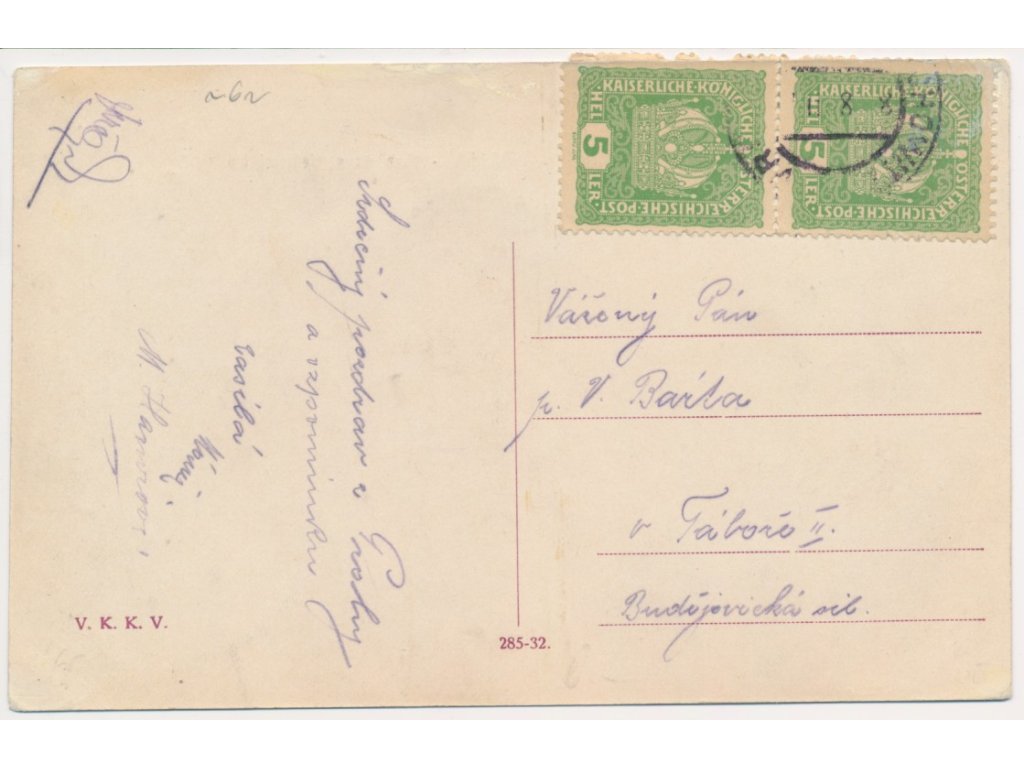 262
KAISERLICHE·KÖNIGLICHE ÖSTERREICHISCHE·POST
5 HEL LER
KAISERLICHE·KÖNIGLICHE ÖSTERREICHISCHE·POST
5 LER
8
Srdečný pozdrav z Prahy
a vzpomínku
zasílá
M.
Vážený Pán
p. V. Bárta
v Táboře II.
Budějovická ul.
V. K. K. V.
285-32.